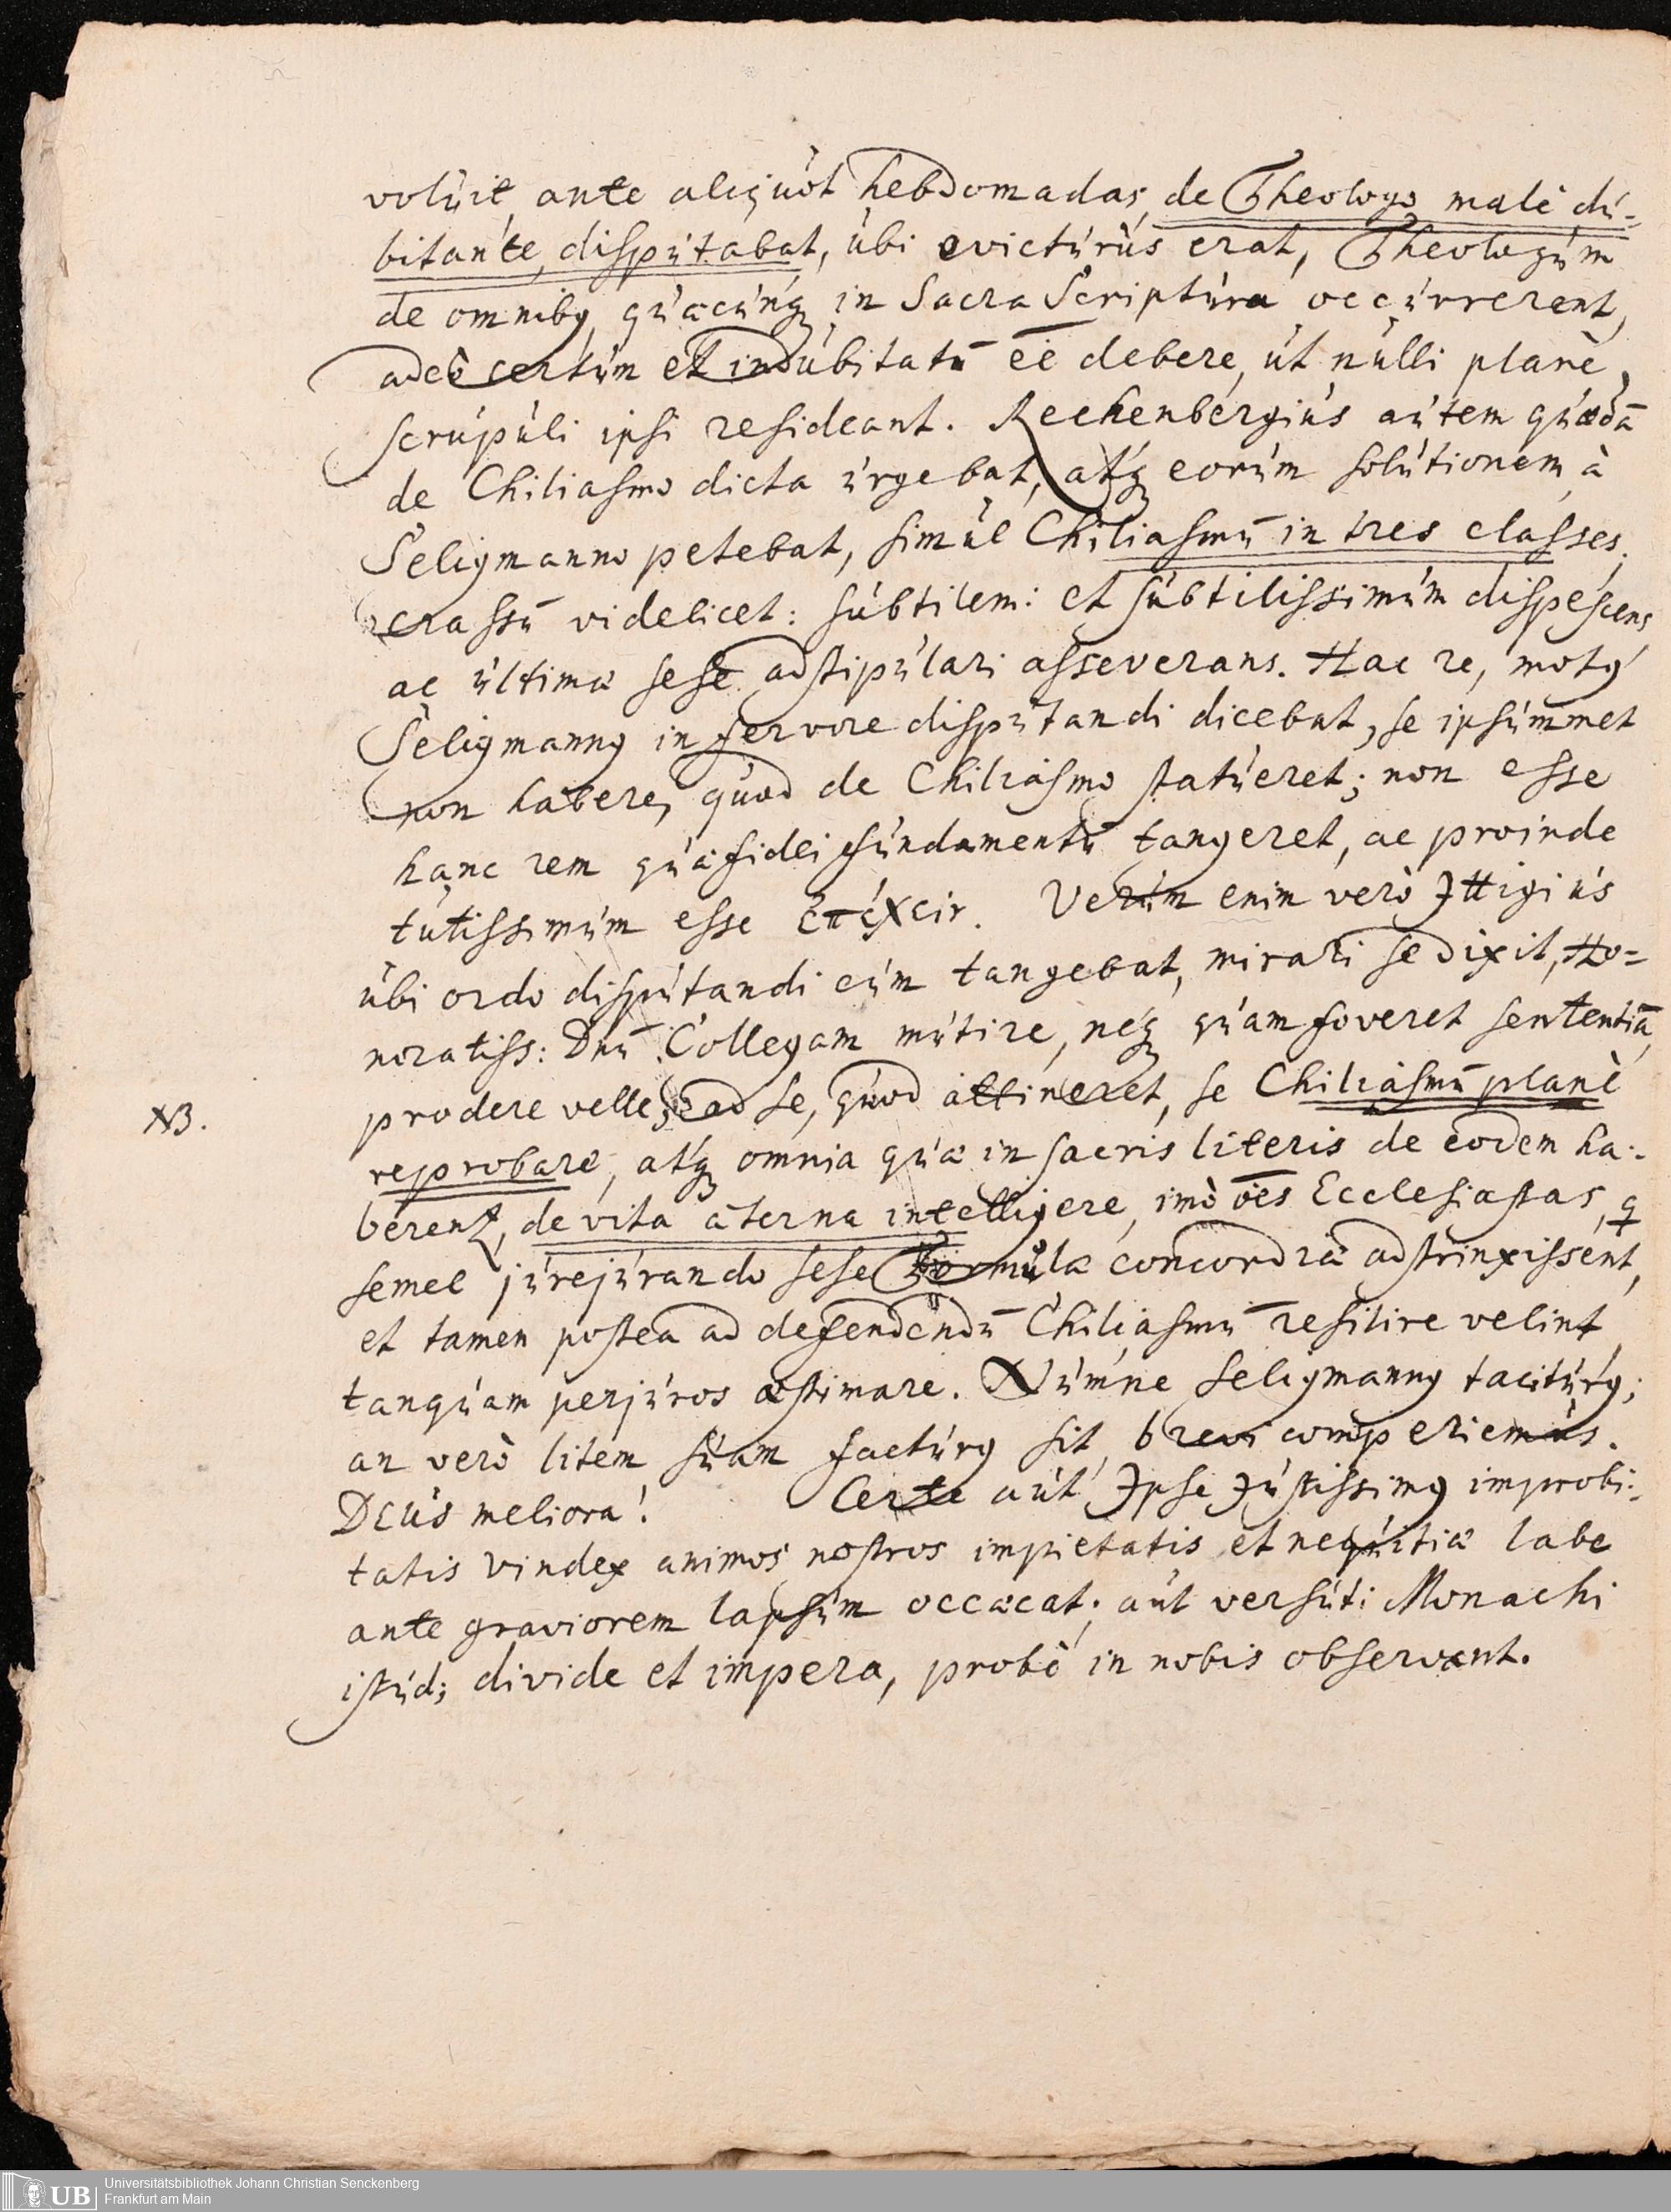 volúit, ante aliqúot hebdomadas, de Theologo malè dú-
bitante, dispútabat, úbi evictúrús erat, Theologúm
de omnibꝰ, qúæcúnqꝫ in Sacra Scriptúra occúrrerent,
adeò certúm et indúbitatū ēē debere, út núlli planè,
scrúpúli ipsi resideant. Rechenbergiús aútem qúædā
de Chiliasmo dicta úrgebat, atqꝫ eorúm solútionem à
Seligmanno petebat, simúl Chiliasmū in tres classes,
crassū videlicet: súbtilem: et súbtilissimúm dispescens
ac últimæ sese adstipúlari asseverans. Hac re, motꝰ
Seligmannꝰ in fervore dispútandi dicebat, se ipsúmmet
non habere, qúod de Chiliasmo statúeret; non esse
hanc rem qúæ fidei fúndamentū tangeret, ac proinde
tútissimúm esse ἐπέχειν. Verúm enim verò Ittigiús
úbi ordo dispútandi eúm tangebat, mirari se dixit, Ho=
noratiss: Dnū Collegam mútire, neqꝫ qúam foveret sententiā,
prodere velle; ad se, qúod attineret, se Chiliasmū planè
NB.
reprobare, atqꝫ omnia qúæ in sacris literis de eodem ha-
berent, de vita æterna intelligere, imò ōēs Ecclesiastas, q
semel júrejúrando sese Formúlæ concordiæ adstrinxissent,
et tamen postea ad defendendū Chiliasmū resilire velint,
tanqúam perjúros æstimare. Númne Seligmannꝰ tacitúrꝰ;
an verò litem súam factúrꝰ sit, brevi comperiemús.
DEUS meliora! Certe aút Ipse Jústissimꝰ improbi-
tatis vindex animos nostros impietatis et neqúitiæ labe
ante graviorem lapsúm occæcat; aút versúti Monachi
istúd; divide et impera, probè in nobis observant.
UB Universitätsbibliothek Johann Christian Senckenberg
Frankfurt am Main